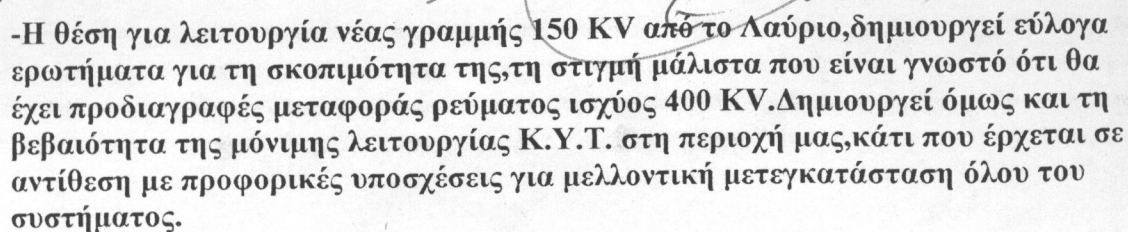 -Η θέση για λειτουργία νέας γραμμής 150 KV από το Λαύριο,δημιουργεί εύλογα
ερωτήματα για τη σκοπιμότητα της,τη στιγμή μάλιστα που είναι γνωστό ότι θα
έχει προδιαγραφές μεταφοράς ρεύματος ισχύος 400 KV.Δημιουργεί όμως και τη
βεβαιότητα της μόνιμης λειτουργίας Κ.Υ.Τ. στη περιοχή μας,κάτι που έρχεται σε
αντίθεση με προφορικές υποσχέσεις για μελλοντική μετεγκατάσταση όλου του
συστήματος.